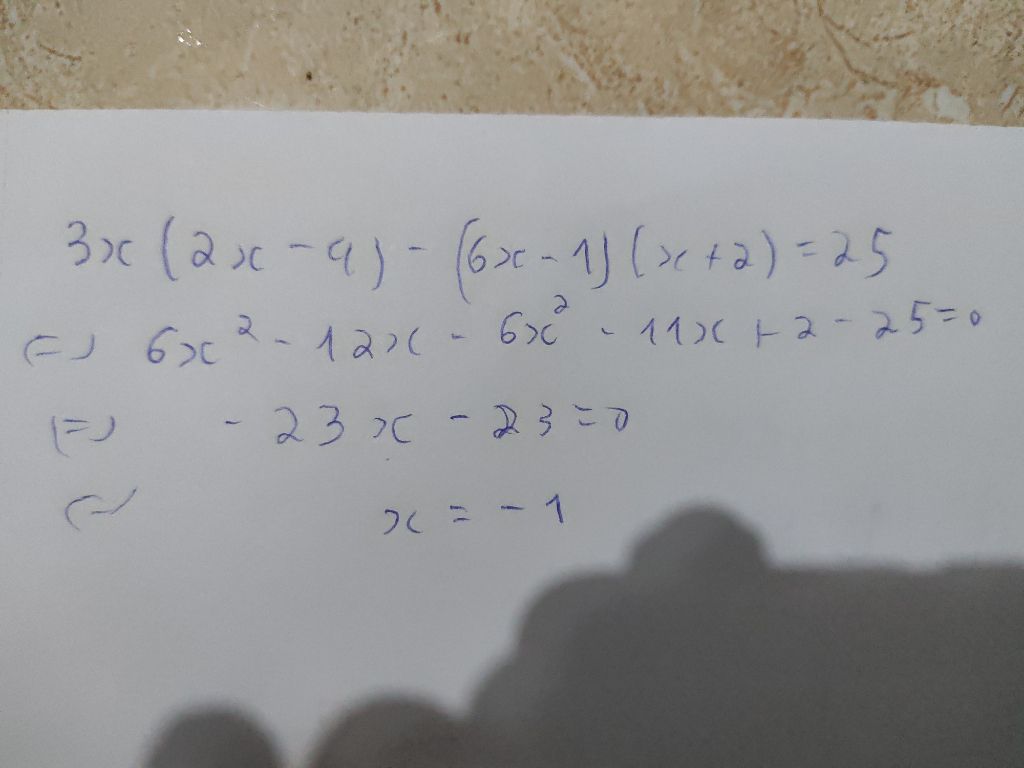 3x(2x - 4) - (6x - 1)(x + 2) = 25
<=> 6x² - 12x - 6x² - 11x + 2 - 25 = 0
<=> - 23x - 23 = 0
<=> x = - 1